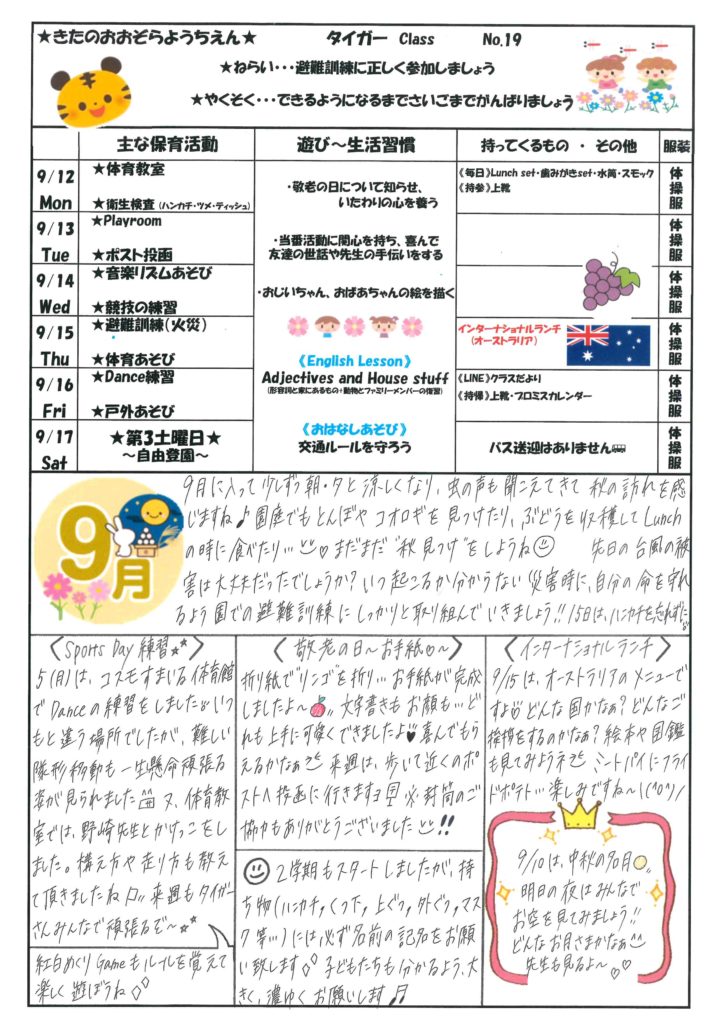 ★きたのおおぞらようちえん★ タイガー Class No.19
★ねらい・・・避難訓練に正しく参加しましょう
★やくそく・・・できるようになるまでさいごまでがんばりましょう
主な保育活動 遊び～生活習慣 持ってくるもの ・ その他 服装
9/12 Mon
★体育教室
★衛生検査（ハンカチ・ツメ・ティッシュ）
9/13 Tue
★Playroom
★ポスト投函
9/14 Wed
★音楽リズムあそび
★競技の練習
9/15 Thu
★避難訓練（火災）
★体育あそび
9/16 Fri
★Dance練習
★戸外あそび
9/17 Sat
★第3土曜日★
～自由登園～
・敬老の日について知らせ、
いたわりの心を養う
・当番活動に関心を持ち、喜んで
友達の世話や先生の手伝いをする
・おじいちゃん、おばあちゃんの絵を描く
《English Lesson》
Adjectives and House stuff
（形容詞と家にあるもの＋動物とファミリーメンバーの復習）
《おはなしあそび》
交通ルールを守ろう
《毎日》Lunch set・歯みがきset・水筒・スモック
《持参》上靴
インターナショナルランチ
（オーストラリア）
《LINE》クラスだより
《持帰》上靴・プロミスカレンダー
バス送迎はありません
体操服
体操服
体操服
体操服
体操服
体操服
9月
9月に入って少しずつ朝・夕と涼しくなり、虫の声も聞こえてきて秋の訪れを感
じますね♪園庭でもとんぼやコオロギを見つけたり、ぶどうを収穫してLunch
の時に食べたり…まだまだ“秋見つけ”をしようね 先日の台風の被
害は大丈夫だったでしょうか？いつ起こるか分からない災害時に、自分の命を守れ
るよう園での避難訓練にしっかりと取り組んでいきましょう!!15日は、ハンカチを忘れずに。
〈Sports Day 練習〉
5(月)は、コスモすまいる体育館
でDanceの練習をしました いつ
もと違う場所でしたが、難しい
隊形移動も一生懸命頑張る
姿が見られました 又、体育教
室では、野崎先生とかけっこをし
ました。構え方や走り方も教え
て頂きましたね 来週もタイガー
さんみんなで頑張るぞ～
紅白めくりGameもルールを覚えて
楽しく遊ぼうね
〈敬老の日～お手紙～〉
折り紙で“リンゴ”を折り…お手紙が完成
しましたよ～ 文字書きもお顔も…ど
れも上手に可愛くできましたよ♥喜んでもら
えるかなぁ 来週は、歩いて近くのポ
ストへ投函に行きますヨ ※封筒のご
協力もありがとうございました!!
2学期もスタートしましたが、持
ち物(ハンカチ,くつ下,上ぐつ,外ぐつ,マス
ク等…)には必ず名前の記名をお願
い致します 子どもたちも分かるよう、大
きく、濃ゆくお願いします♫
〈インターナショナルランチ〉
9/15は、オーストラリアのメニューで
すよ どんな国かなぁ？どんなご
挨拶をするのかなぁ？絵本や図鑑
も見てみようネ ミートパイにフライ
ドポテト…楽しみですね～\(^o^)/
9/10は、中秋の名月
明日の夜はみんなで
お空を見てみましょう!!
どんなお月さまかなぁ^^
先生も見るよ～♡♡